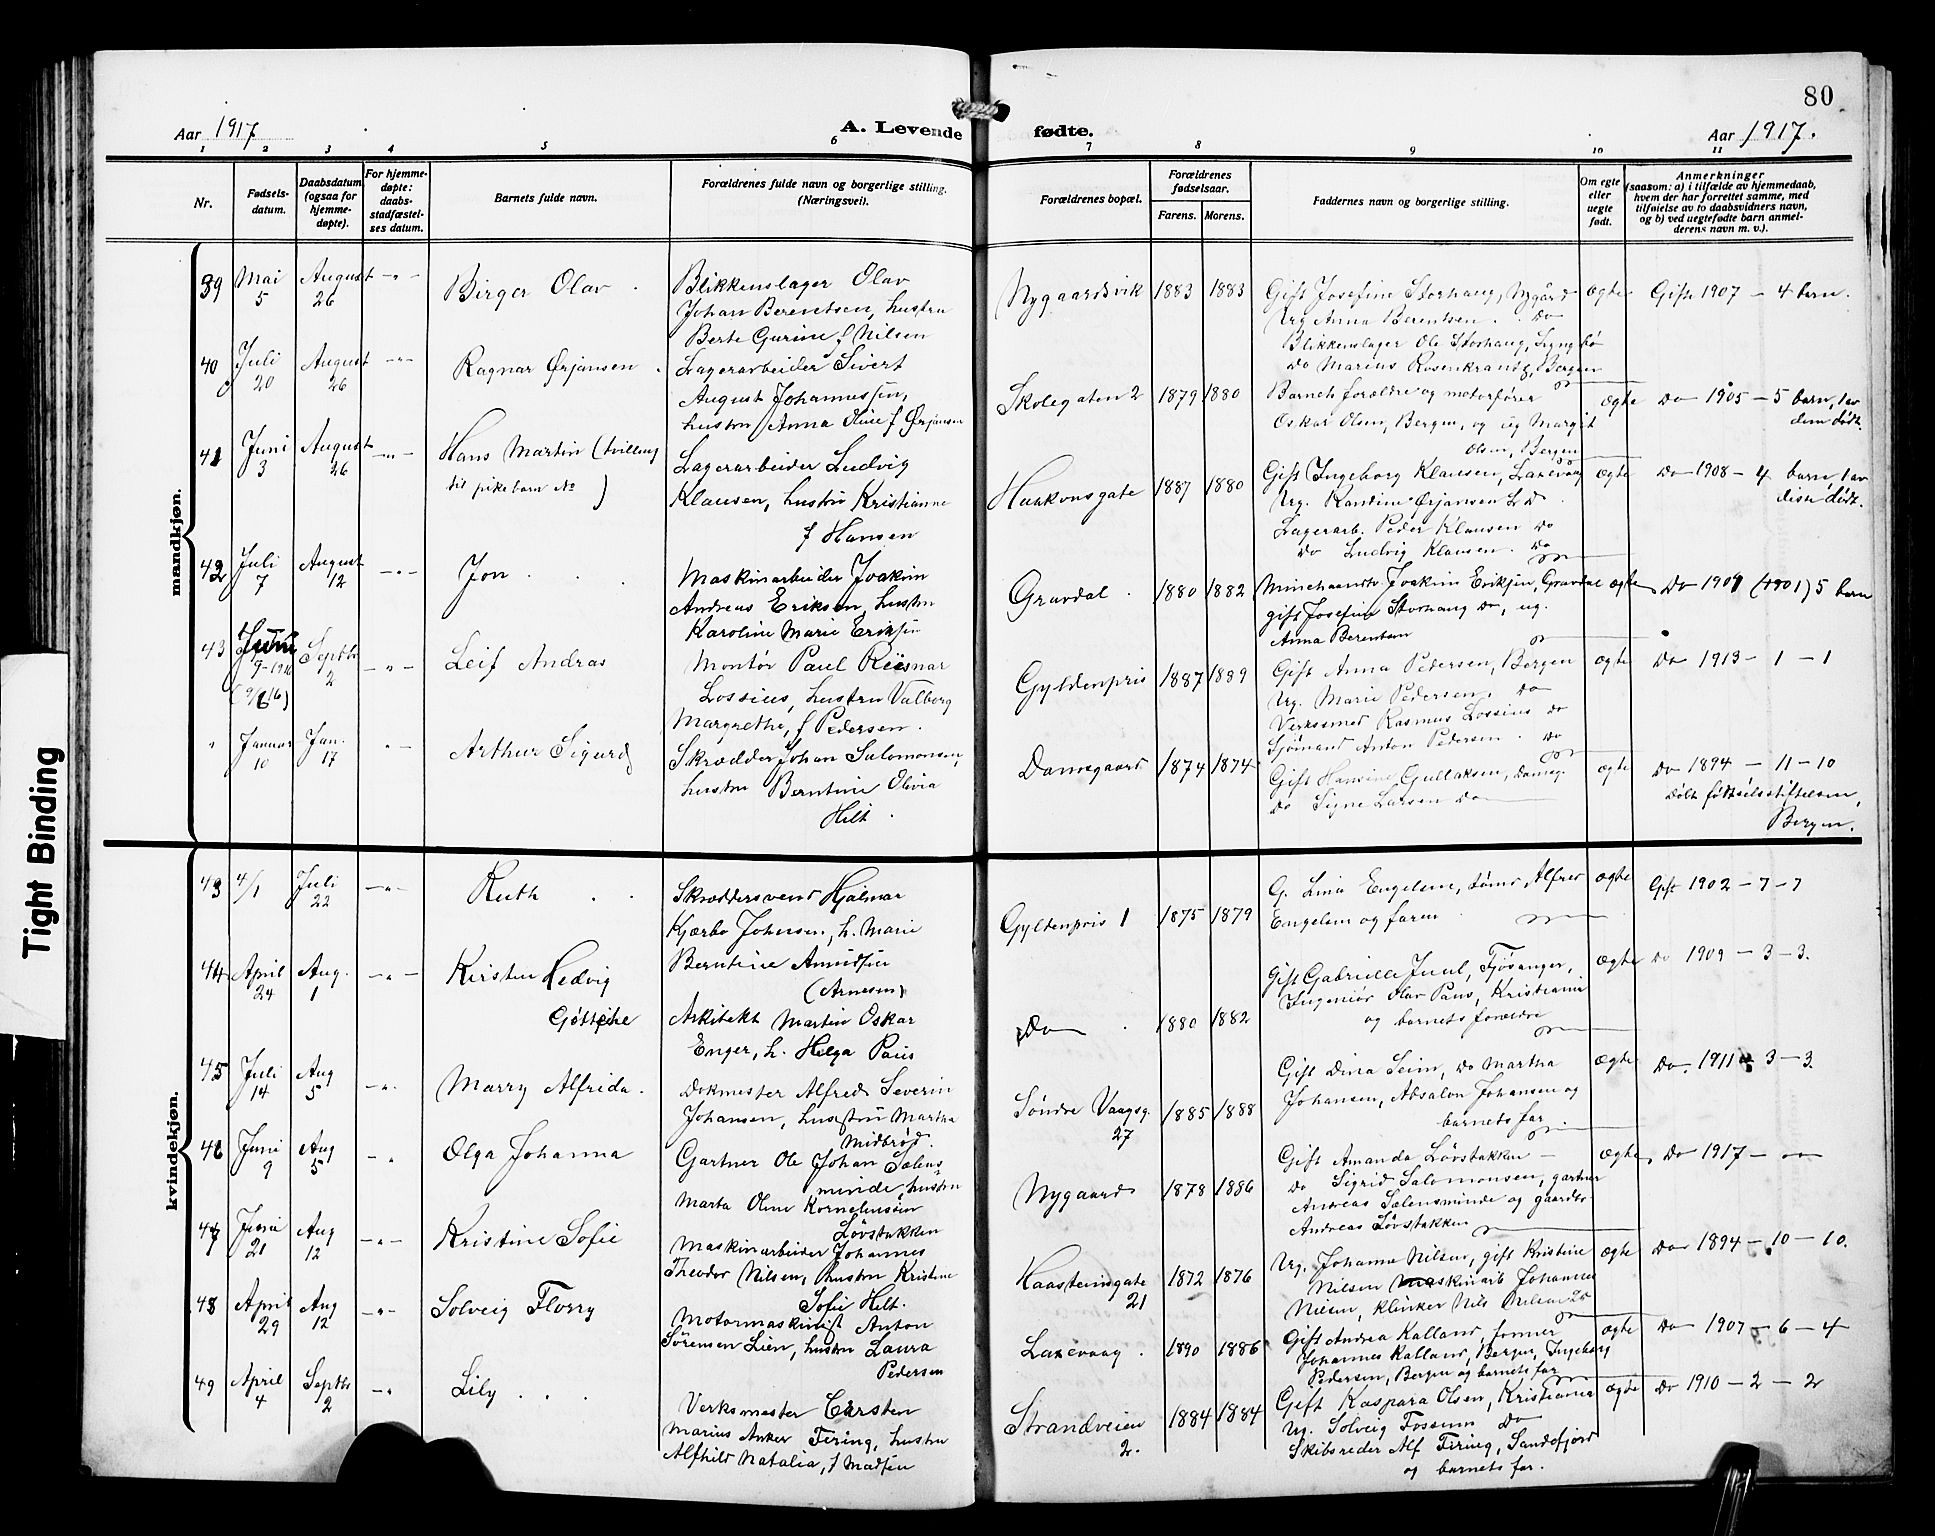 80
Aar 1917
A. Levende
fødte.
Aar 1917.
1 2 3 4 5 6 7 8 9 10 11
Nr.
Fødsels-
datum.
Daabsdatum
(ogsaa for
hjemme-
døpte).
For hjemme-
døpte:
daabs-
stadfæstel-
ses datum.
Barnets fulde navn.
Forældrenes fulde navn og borgerlige stilling.
(Næringsvei).
Forældrenes bopæl.
Forældrenes
fødselsaar.
Farens. Morens.
Faddernes navn og borgerlige stilling.
Om egte
eller
uegte
født.
Anmerkninger
(saasom: a) i tilfælde av hjemmedaab,
hvem der har forrettet samme, med
tilføielse av to daabsvidners navn,
og b) ved uegtefødte barn anmel-
derens navn m. v.).
mandkjøn.
39
Mai
5
August
26
Birger Olav
Blikkenslager Olav
Johan Berentsen, hustru
Berte Gurine f Nilsen
Nygaardsvik
1883 1883
Gift Josefine Storhaug, Nygård
Ug Anna Berentsen. Do
Blikkenslager Ole Storhaug, Lyngbø
do Marius Rosenkrands, Bergen
ægte
Gifte 1907 - 4 barn.
40
Juli
20
August
26
Ragnar Ørjansen
Lagerarbeider Sivert
August Johannessen,
hustru Anna Oline f Ørjansen
Skolegaten 2
1879 1880
Barnets forældre og motorfører
Oskar Olsen, Bergen, og ug Margit
Olsen, Bergen
ægte
Do 1905 - 5 barn, 1 av
dem dødt.
41
Juni
3
August
26
Hans Martin (tvilling
til pikebarn No )
Lagerarbeider Ludvig
Klausen, hustru Kristianne
f Hansen
Haakonsgate
1887 1880
Gift Ingeborg Klausen, Laxevaag
Ug. Randine Ørjansen Do
Lagerarb. Peder Klausen Do
Do Ludvig Klausen. Do
ægte
Do 1908 - 4 barn, 1 av
disse dødt.
42
Juli
7
August
12
Jon
Maskinarbeider Joakim
Andreas Eriksen, hustru
Karoline Marie Eriksen
Gravdal.
1880 1882
Joakim Eriksen, Gravdal
gift Josefine Storhaug do, ug.
Anna Berentsen
ægte
Do 1901 (1901) 5 barn
43
Juni
9-1916
(9/6 16)
Septbr
2
Leif Andras
Montør Paul Riisnar
Lossius, hustru Valborg
Margrethe, f Pedersen.
Gyldenpris
1887 1889
Gift Anna Pedersen, Bergen
Ug. Marie Pedersen. Do
Verkssmed Rasmus Lossius do
Sjømand Anton Pedersen. Do
ægte
Do 1913 - 1 - 1
"
Januar
10
Jan.
17
Arthur Sigurd
Skrædder Johan Salomonsen,
hustru Berntine Olivia
Hilt.
Damsgaard
1874 1874
Gift Hansine Gullaksen, Damsg.
do Signe Larsen Do
ægte
Do 1894 - 11 - 10
Døbt fødselsstiftelsen,
Bergen.
kvindekjøn.
43
4/1
Juli
22
Ruth
Skræddersvend Hjalmar
Kjærbo Johensen, h. Marie
Berntine Arnesen
(Arnesen)
Gyldenpris 1
1875 1879
G. Lina Engelsen, Alfred
Engelsen og faren
ægte
Gift 1902 - 7 - 7
44
April
24
Aug.
1
Kirsten Hedvig
Gøttsche
Arkitekt Martin Oskar
Enger, h. Helga Paus
Do
1880 1882
Gift Gabrielle Juul, Fjøsanger,
Ingeniør Olav Paus, Kristiania
og barnets forældre
ægte
Do 1909 - 3 - 3.
45
Juli
14
Aug
5
Marry Alfrida.
Dokmester Alfred Severin
Johansen, hustru Martha
Midbrød.
Søndre Vaagsg.
27
1885 1888
Gift Dina Seim, do Martha
Johansen, Absalon Johansen og
barnets far
ægte
Do. 1911 - 3 - 3.
46
Juni
9
Aug
5
Olga Johanna
Gartner Ole Johan Sælens
minde, hustru
Marta Oline Korneliussen
Løvstakken
Nygaard
1878 1886
Gift Amanda Løvstakken
do Sigrid Salomonsen, gartner
Andreas Sælensminde og gaardbr
Andreas Løvstakken
ægte
Do 1917
47
Juni
21
Aug
12
Kristine Sofie
Maskinarbeider Johannes
Theodor Nilsen, hustru Kristine
Sofie Hilt.
Kaasteinsgate
21
1872 1876
Ug. Johanna Nilsen, gift Kristine
Nilsen Maskinarb Johannes
Nilsen, klinker Nils Nilsen Do
ægte
Do 1894 - 10 - 10.
48
April
29
Aug
12
Solveig Florry
Motormaskinist Anton
Sørensen Lien, hustru Laura
Pedersen
Laxevaag.
1890 1886
Gift Andrea Kalland, former
Johannes Kalland, Bergen, Ingeborg
Pedersen, Bergen og barnets far
ægte
Do 1907 - 6 - 4
49
April
4
Septbr
2
Lily
Verksmester Carsten
Marius Anker Firing, hustru
Alfhild Natalia, f Madsen
Strandveien
2.
1884 1884
Gift Kaspara Olsen, Kristiania
Ug. Solveig Fossum Do
Skibsreder Alf Firing, Sandefjord
og barnets far.
ægte
Do 1910 - 2 - 2
Tight Binding